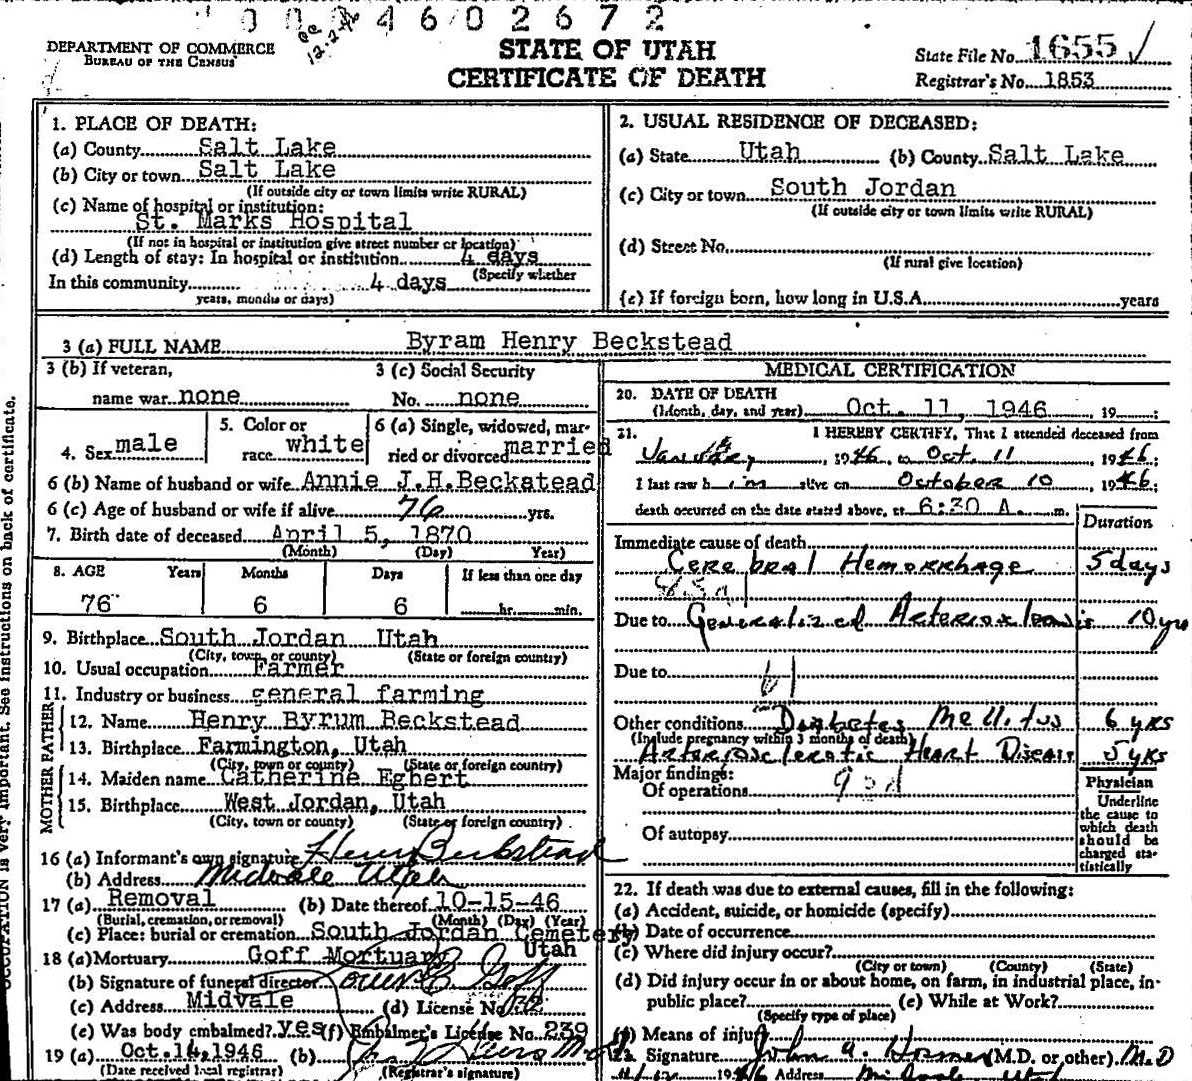 0 0 4 6 0 2 6 7 2
12-2-46
DEPARTMENT OF COMMERCE
BUREAU OF THE CENSUS
STATE OF UTAH
CERTIFICATE OF DEATH
State File No. 1655 ✓
Registrar's No. 1853
1. PLACE OF DEATH:
(a) County Salt Lake
(b) City or town Salt Lake
(If outside city or town limits write RURAL)
(c) Name of hospital or institution:
St. Marks Hospital
(If not in hospital or institution give street number or location)
(d) Length of stay: In hospital or institution 4 days
(Specify whether
In this community 4 days
years, months or days)
2. USUAL RESIDENCE OF DECEASED:
(a) State Utah (b) County Salt Lake
(c) City or town South Jordan
(If outside city or town limits write RURAL)
(d) Street No.
(If rural give location)
(e) If foreign born, how long in U.S.A. years
3 (a) FULL NAME Byram Henry Beckstead
3 (b) If veteran,
name war none
3 (c) Social Security
No. none
4. Sex male
5. Color or
race white
6 (a) Single, widowed, mar-
ried or divorced married
6 (b) Name of husband or wife Annie J.H.Beckstead
6 (c) Age of husband or wife if alive 76 yrs.
7. Birth date of deceased April 5, 1870
(Month) (Day) Year)
8. AGE Years Months Days If less than one day
76 6 6 hr. min.
9. Birthplace South Jordan Utah
(City, town, or county) (State or foreign country)
10. Usual occupation Farmer
11. Industry or business general farming
FATHER
12. Name Henry Byrum Beckstead
13. Birthplace Farmington, Utah
(City, town or county) (State or foreign country)
MOTHER
14. Maiden name Catherine Egbert
15. Birthplace West Jordan, Utah
(City, town or county) (State or foreign country)
16 (a) Informant's own signature Henry Beckstead
(b) Address Midvale Utah
17 (a) Removal (b) Date thereof 10-15-46
(Burial, cremation, or removal) (Month) (Day) (Year)
(c) Place: burial or cremation South Jordan Cemetery
Utah
18 (a) Mortuary Goff Mortuary
(b) Signature of funeral director Goff
(c) Address Midvale (d) License No.
(e) Was body embalmed? yes (f) Embalmer's License No. 239
19 (a) Oct. 14, 1946 (b)
(Date received local registrar) (Registrar's signature)
MEDICAL CERTIFICATION
20. DATE OF DEATH
(Month, day, and year) Oct. 11, 1946 , 19 ;
21. I HEREBY CERTIFY, That I attended deceased from
January , 1946, to Oct. 11 1946;
I last saw him alive on October 10 , 1946;
death occurred on the date stated above, at 6:30 A. m.
Duration
Immediate cause of death
Cerebral Hemorrhage 5 days
Due to Generalized Arteriosclerosis 10 yrs
Due to
61
Other conditions Diabetes Mellitus 6 yrs
(Include pregnancy within 3 months of death)
Arteriosclerotic Heart Disease 5 yrs
Major findings:
Of operations
Of autopsy
Physician
Underline
the cause to
which death
should be
charged sta-
tistically
22. If death was due to external causes, fill in the following:
(a) Accident, suicide, or homicide (specify)
(b) Date of occurrence
(c) Where did injury occur?
(City or town) (County) (State)
(d) Did injury occur in or about home, on farm, in industrial place, in-
public place? (e) While at Work?
(Specify type of place)
(f) Means of injury
23. Signature John A. (M.D. or other) M.D
1946 Address Midvale Utah
OCCUPATION is very important. See instructions on back of certificate.